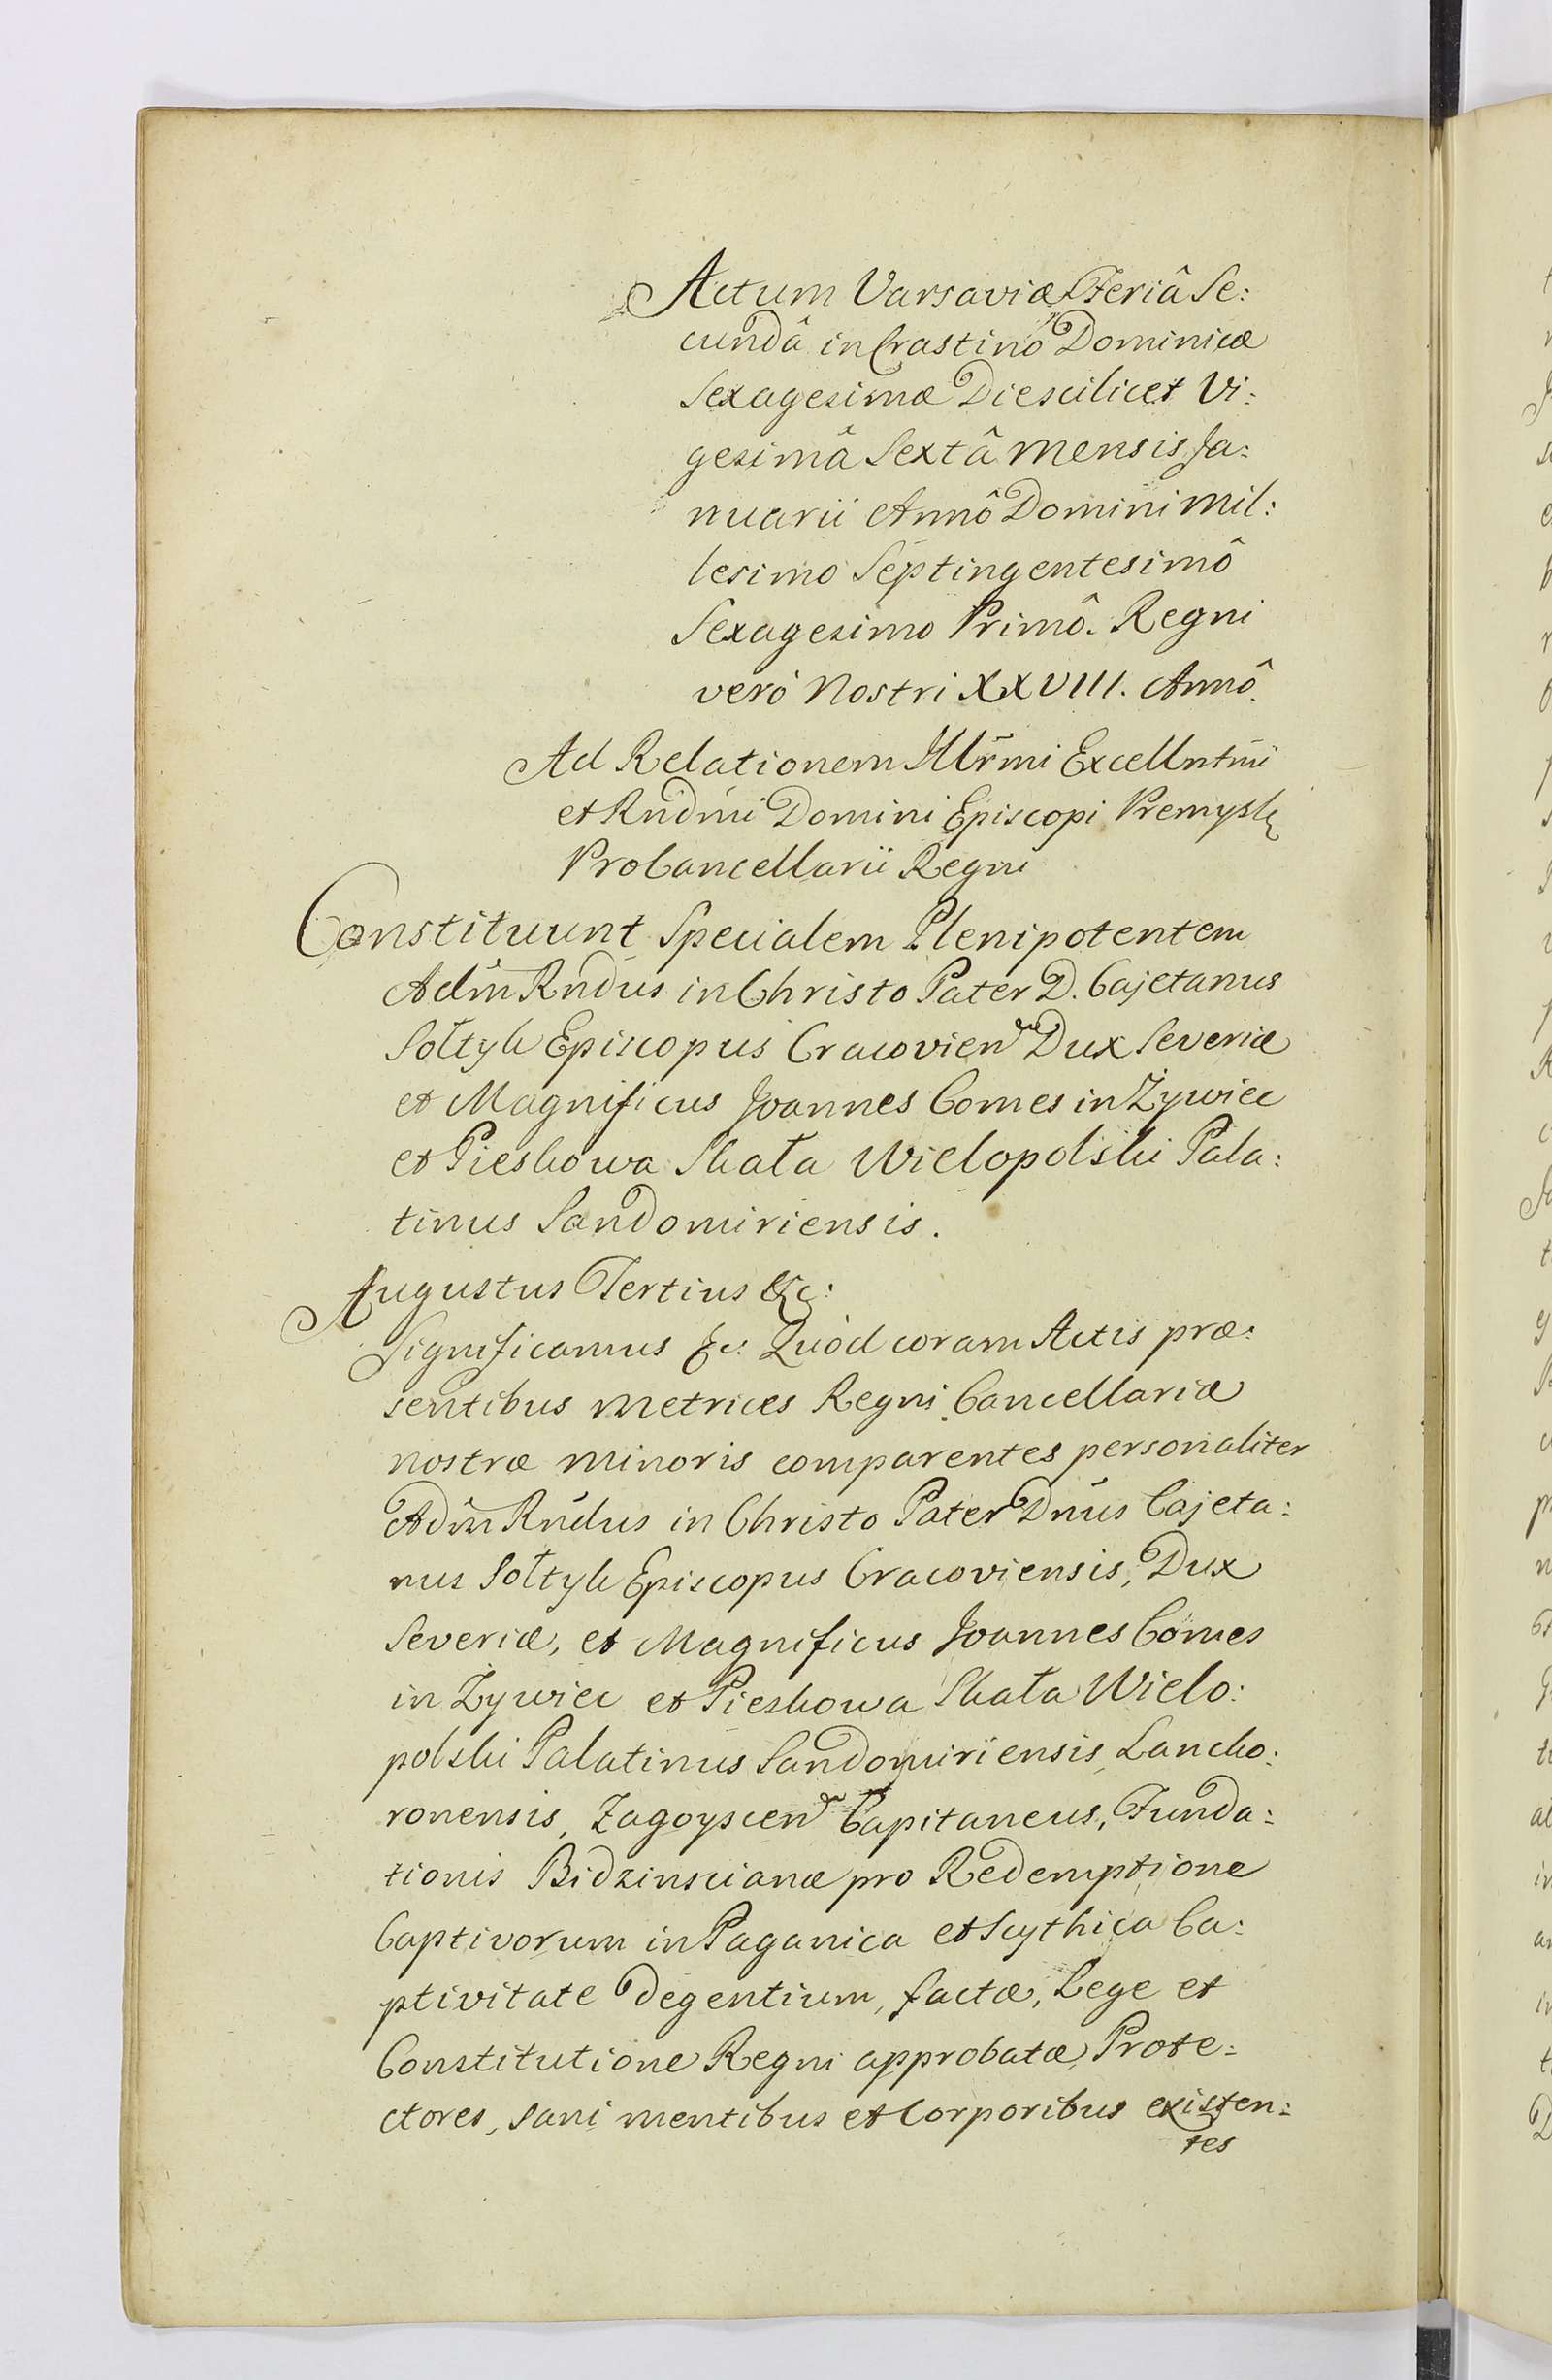 Actum Varsaviæ Feriâ Se:
cundâ in Crastinô Dominicæ
Sexagesimæ Die scilicet Vi:
gesimâ Sextâ Mensis Ja:
nuarii Annô Domini Mil:
lesimo Septingentesimô
Sexagesimo Primô. Regni
verò Nostri XXVIII. Annô.
Ad Relationem Illrmi Excellntmi
et Rndmi Domini Episcopi Premysl
ProCancellarii Regni
Constituunt Specialem Plenipotentem
Adm Rndus in Christo Pater D. Cajetanus
Sołtyk Episcopus Cracovien Dux Severiæ
et Magnificus Joannes Comes in Żywiec
et Pieskowa Skała Wielopolski Pala:
tinus Sandomiriensis.
Augustus Tertius &c:
Significamus &c: Quòd coram Actis præ:
sentibus Metrices Regni Cancellariæ
nostræ minoris comparentes personaliter
Adm Rndus in Christo Pater Dnus Cajeta:
nus Sołtyk Episcopus Cracoviensis, Dux
Severiæ, et Magnificus Joannes Comes
in Żywiec et Pieskowa Skała Wielo:
polski Palatinus Sandomiriensis, Lancko:
ronensis, Zagoyscen Capitaneus, Funda:
tionis Bidzinscianæ pro Redemptione
Captivorum in Paganica et Scythica Ca:
ptivitate degentium, factæ, Lege et
Constitutione Regni approbatæ, Prote:
ctores, sani mentibus et Corporibus existen:
tes